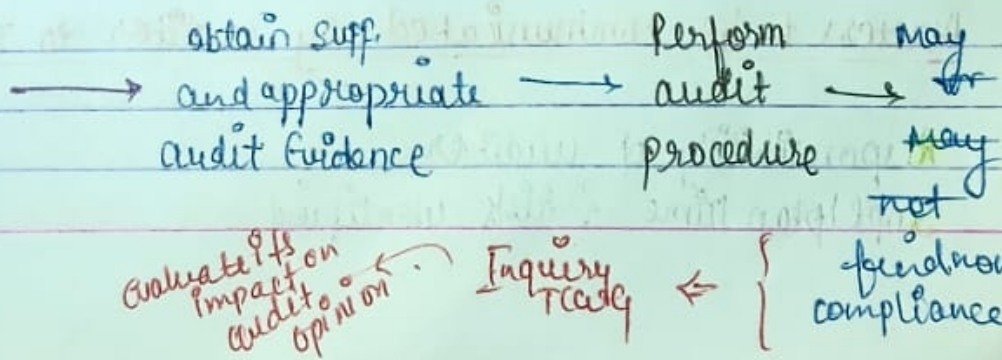 obtain Suff.
and appropriate
audit Evidence
Perform
audit
procedure
May
or
May
not
find non
compliance
Inquiry
TCWG
evaluate its
impact on
audit
opinion